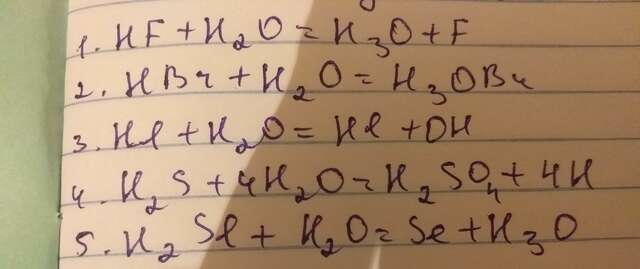 1. HF + H₂O = H₃O + F
2. HBr + H₂O = H₃OBr
3. Hl + H₂O = Hl + OH
4. H₂S + 4H₂O = H₂SO₄ + 4H
5. H₂Se + H₂O = Se + H₃O